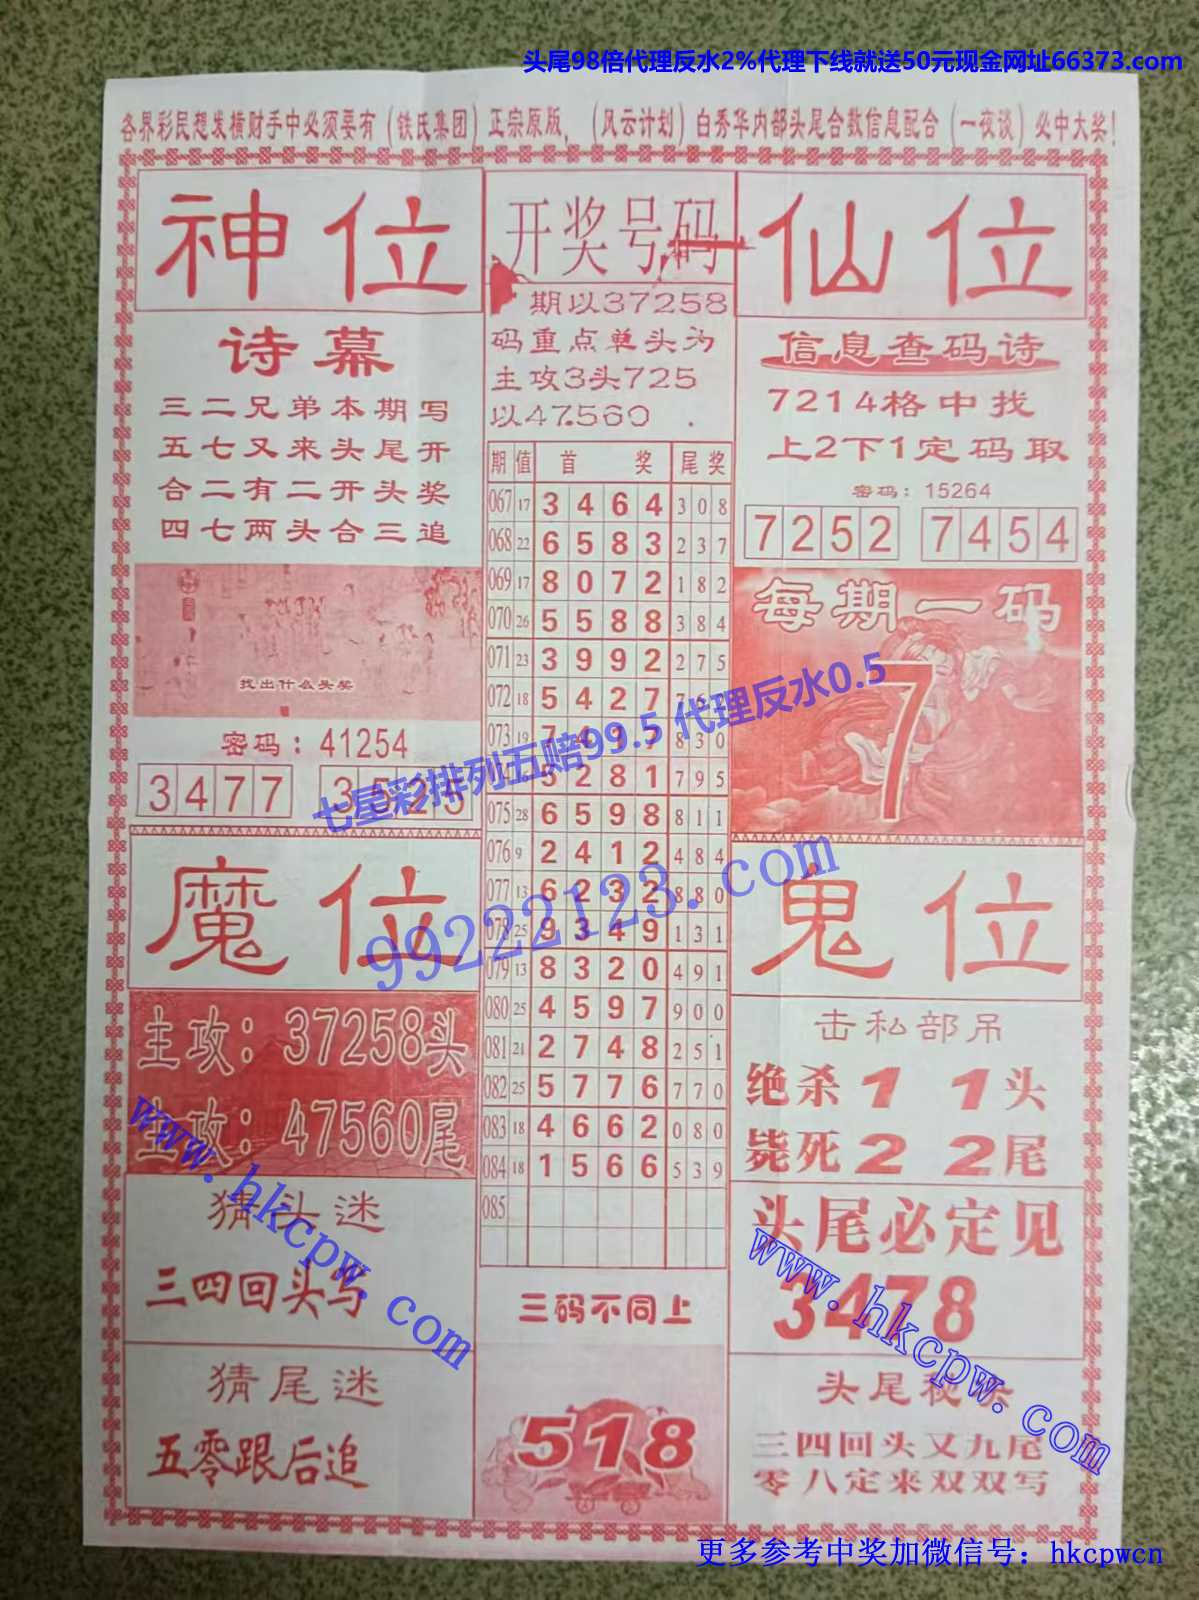 头尾98倍代理反水2%代理下线就送50元现金网址66373.com
各界彩民想发横财手中必须要有（铁氏集团）正宗原版，（风云计划）白秀华内部头尾合数信息配合（一夜谈）必中大奖！
神位
诗幕
三二兄弟本期写
五七又来头尾开
合二有二开头奖
四七两头合三追
找出什么头奖
密码：41254
3477
魔位
主攻：37258头
主攻：47560尾
猜头迷
三四回头写
猜尾迷
五零跟后追
开奖号码
期以37258
码重点单头为
主攻3头725
以47.560.
期 值 首 奖 尾奖
067 17 3 4 6 4 3 0 8
068 22 6 5 8 3 2 3 7
069 17 8 0 7 2 1 8 2
070 26 5 5 8 8 3 8 4
071 23 3 9 9 2 2 7 5
072 18 5 4 2 7 7 6 2
073 19 7 4 1 7 8 3 0
5 2 8 1 7 9 5
075 28 6 5 9 8 8 1 1
076 9 2 4 1 2 4 8 4
077 13 6 2 3 2 8 8 0
078 25 9 3 4 9 1 3 1
079 13 8 3 2 0 4 9 1
080 25 4 5 9 7 9 0 0
081 21 2 7 4 8 2 5 1
082 25 5 7 7 6 7 7 0
083 18 4 6 6 2 0 8 0
084 18 1 5 6 6 5 3 9
085
三码不同上
518
仙位
信息查码诗
7214格中找
上2下1定码取
密码：15264
7252 7454
每期一码
7
鬼位
击私部吊
绝杀1 1头
毙死2 2尾
头尾必定见
3478
头尾秘杀
三四回头又九尾
零八定来双双写
七星彩排列五赔99.5 代理反水0.5
99222123.com
www.hkcpw.com
www.hkcpw.com
更多参考中奖加微信号：hkcpwcn